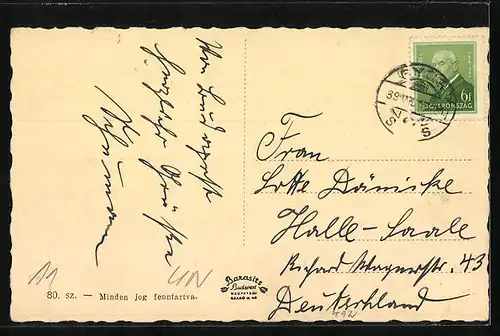 Von Budapest
herzliche Grüße
6f
MAGYARORSZÁG
Frau
Lotte Dänicke
Halle-Saale
Richard Wagnerstr. 43
Deutschland
11
UN
80. sz. — Minden jog fenntartva.
Barasits
Budapest